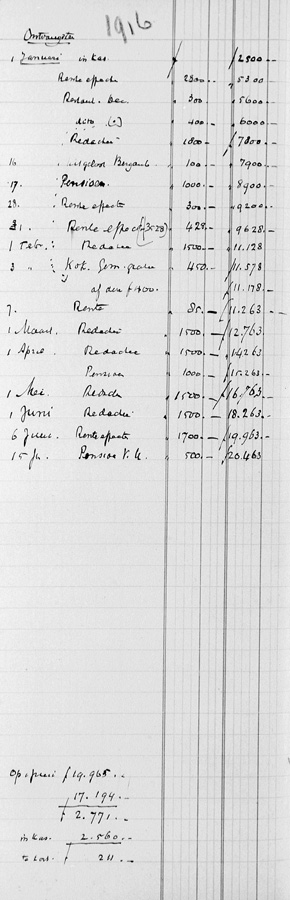 1916
Ontvangsten
1 Januari in kas. 2500.—
Rente effecten 2800.— 5300
Restant Dec. 300.— 5600
dito 400.— 6000
Redactie 1800.— 7800.—
16 Bergamb. 100.— 7900.—
17. Pensioen 1000.— 8900.—
23. Rente effecten 300.— 9200.—
31. Rente effecten (3528) 428.— 9628.—
1 Febr. Redactie 1500.— 11.128
3 " Kok. Gem. 450.— 11.578
af den ƒ400. 11.178.—
7. Rente 85.— 11.263.—
1 Maart. Redactie 1500.— 12.763
1 April Redactie 1500.— 14263.—
Pensioen 1000.— 15.263.—
1 Mei. Redactie 1500.— 16.763
1 Juni Redactie 1500.— 18.263.—
6 Juni. Rente effecten 1700.— 19.963.—
15 Ju. Pensioen V. U. 500.— ƒ20.463
Op 9 juni ƒ19.965.—
ƒ17.194.—
ƒ2.771.—
in kas. 2.560.—
te kort. ƒ211.—